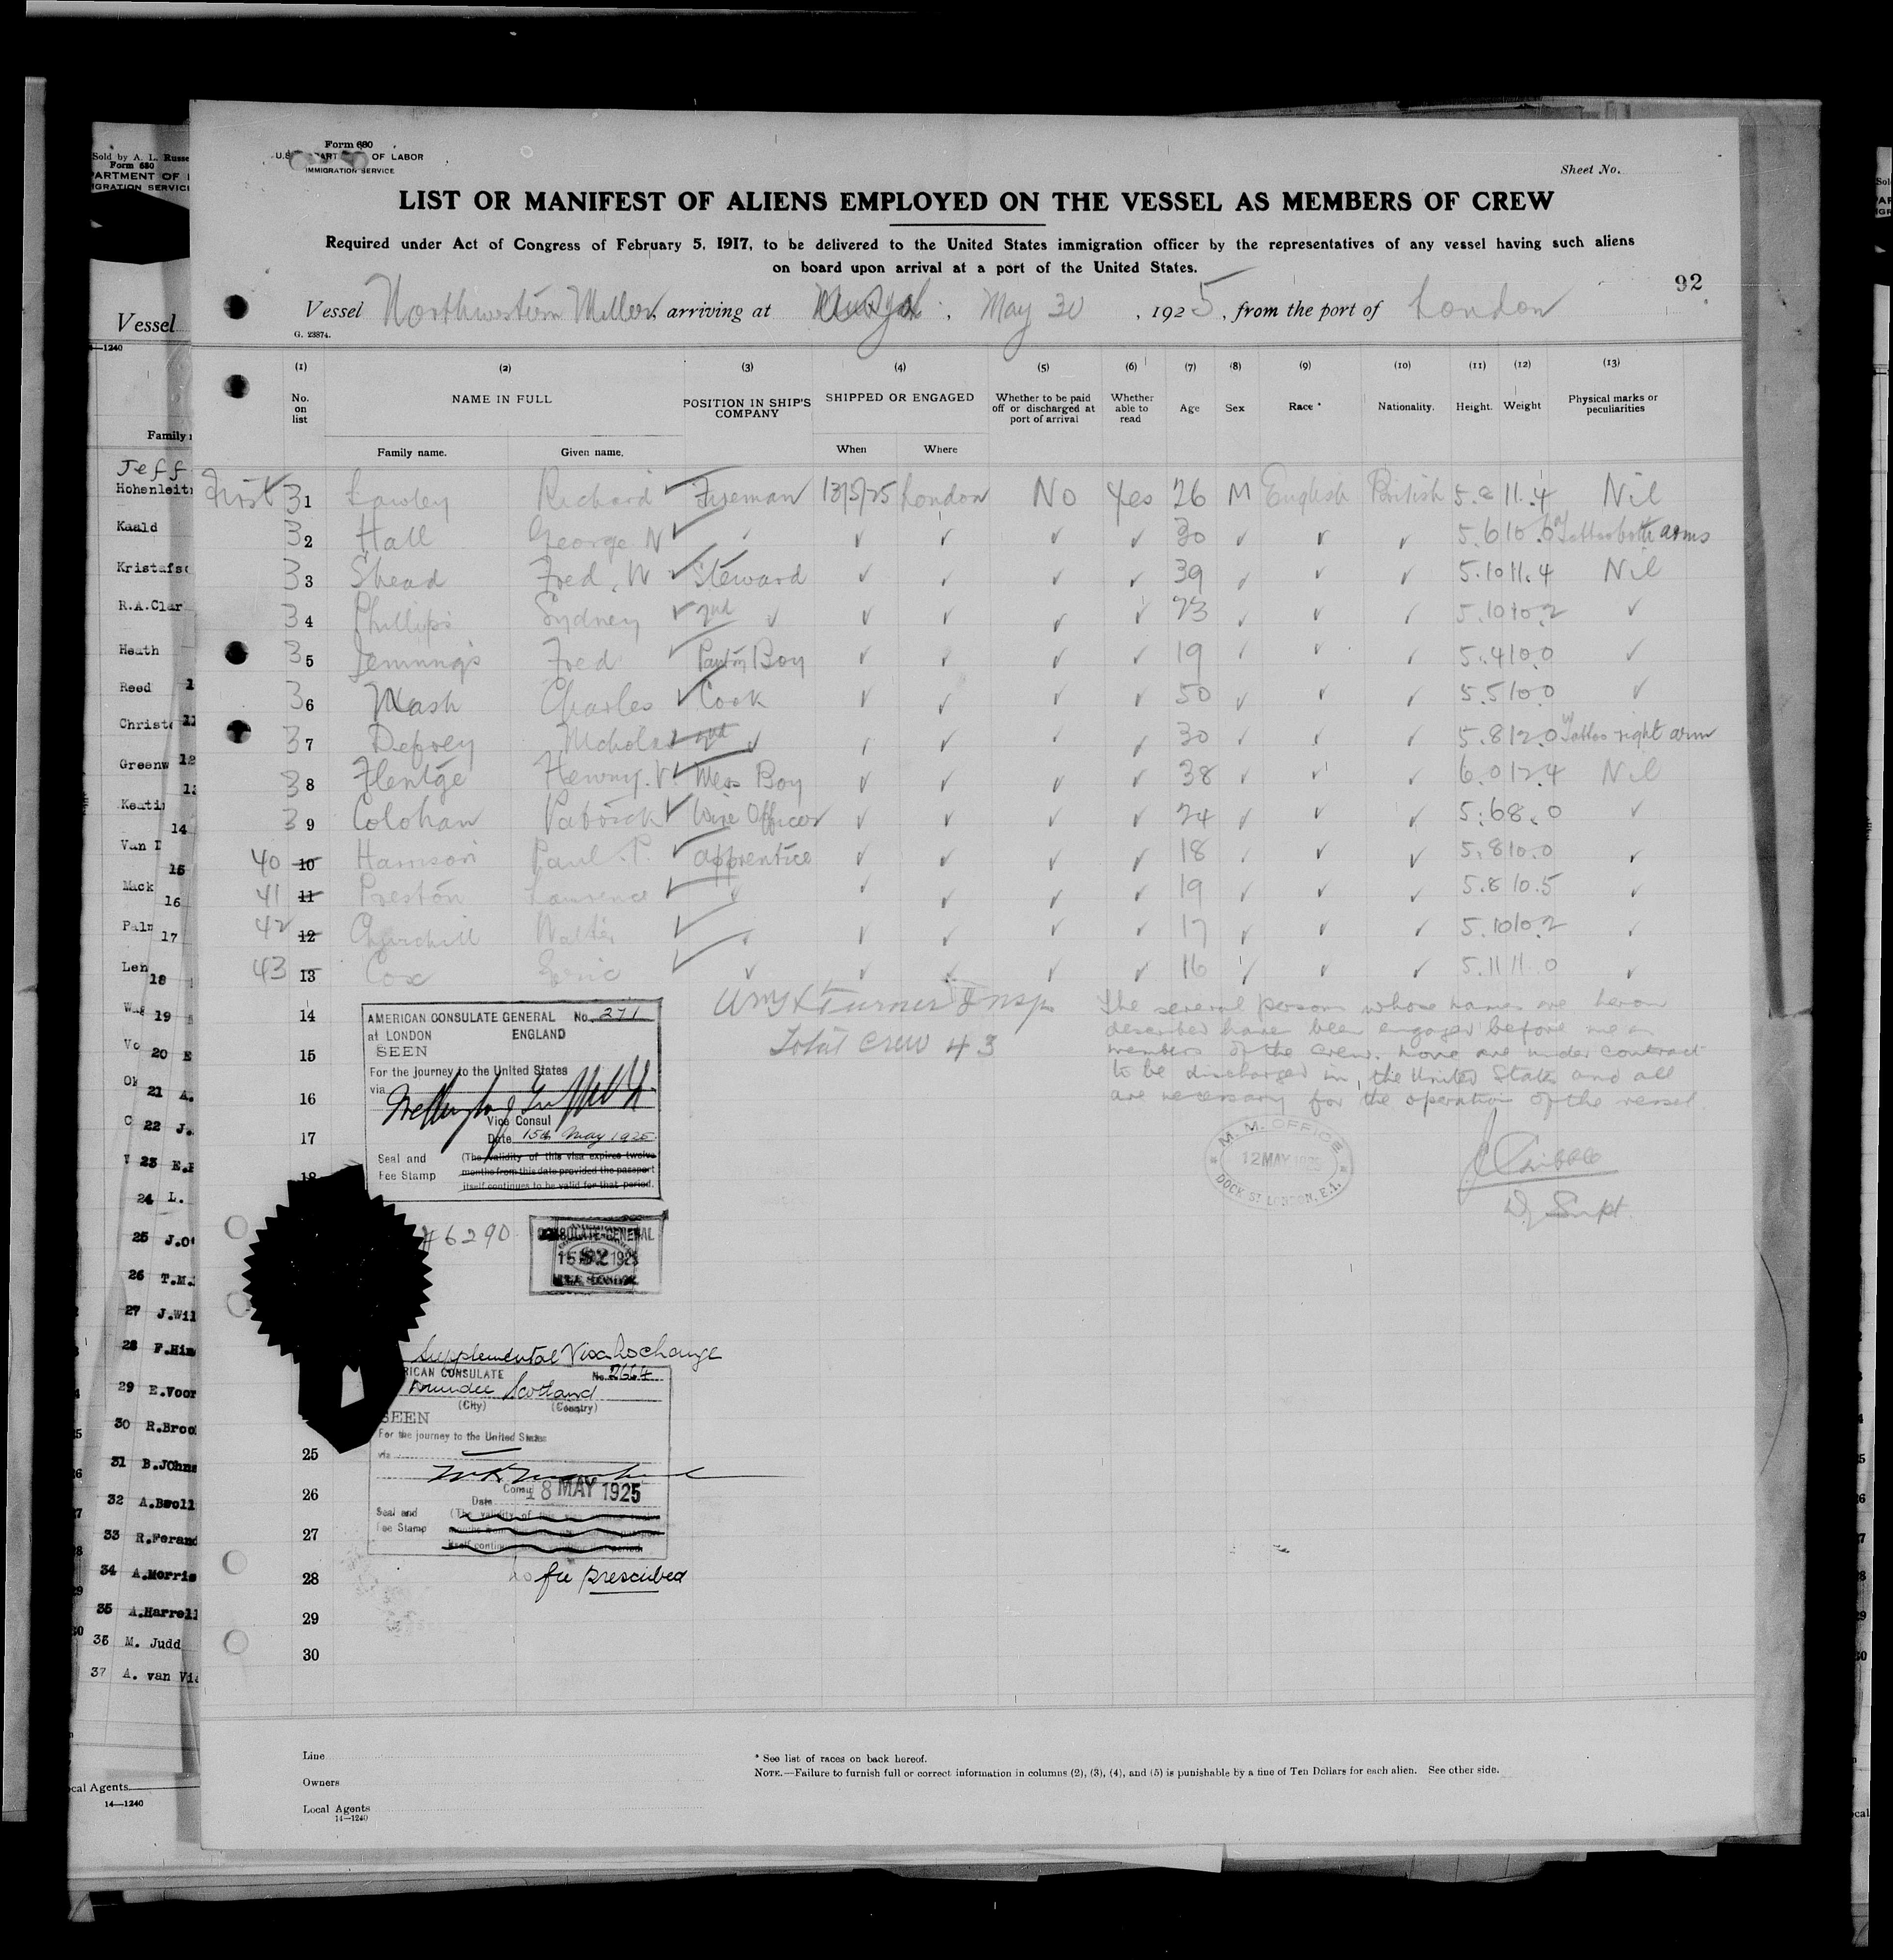 Form 680
OF LABOR
IMMIGRATION SERVICE
Sheet No.
LIST OR MANIFEST OF ALIENS EMPLOYED ON THE VESSEL AS MEMBERS OF CREW
Required under Act of Congress of February 5, 1917, to be delivered to the United States immigration officer by the representatives of any vessel having such aliens
on board upon arrival at a port of the United States.
92
Vessel Northwestern Miller, arriving at May 30, 1925, from the port of London
G. 23874.
(1) (2) (3) (4) (5) (6) (7) (8) (9) (10) (11) (12) (13)
No. on list NAME IN FULL POSITION IN SHIP'S COMPANY SHIPPED OR ENGAGED Whether to be paid off or discharged at port of arrival Whether able to read Age Sex Race * Nationality. Height. Weight Physical marks or peculiarities
Family name. Given name. When Where
First 31 Lawley Richard Fireman 13/5/25 London No Yes 26 M English British 11.4 Nil
32 Hall George N ✓ ✓ ✓ ✓ ✓ 30 ✓ ✓ ✓ 5.6 Tattoo both arms
33 Shead Fred. W Steward ✓ ✓ ✓ ✓ 39 ✓ ✓ ✓ 5.10 11.4 Nil
34 Phillips Sydney 2nd ✓ ✓ ✓ ✓ ✓ 23 ✓ ✓ ✓ 5.10 10.2 ✓
35 Jennings Fred Pantry Boy ✓ ✓ ✓ ✓ 19 ✓ ✓ ✓ 5.4 10.0 ✓
36 Nash Charles Cook ✓ ✓ ✓ ✓ 50 ✓ ✓ ✓ 5.5 10.0 ✓
37 Defoey Nicholas 2nd ✓ ✓ ✓ ✓ ✓ 30 ✓ ✓ ✓ 5.8 12.0 Tattoo right arm
38 Flentge Henry. Mess Boy ✓ ✓ ✓ ✓ 38 ✓ ✓ ✓ 6.0 12.4 Nil
39 Colohan Patrick Wire Officer ✓ ✓ ✓ ✓ 24 ✓ ✓ ✓ 5.6 8.0 ✓
40 10 Harrison Paul. P. apprentice ✓ ✓ ✓ ✓ 18 ✓ ✓ ✓ 5.8 10.0 ✓
41 11 Preston Laurence ✓ ✓ ✓ ✓ ✓ 19 ✓ ✓ ✓ 5.8 10.5 ✓
42 12 Churchill Walter ✓ ✓ ✓ ✓ ✓ 17 ✓ ✓ ✓ 5.10 10.2 ✓
43 13 Cox Eric ✓ ✓ ✓ ✓ ✓ 16 ✓ ✓ ✓ 5.11 11.0 ✓
14
15
16
17
18
Turner Insp
Total crew 43
The several persons whose names are hereon
described have been engaged before me as
members of the crew. none are under contract
to be discharged in the United States and all
are necessary for the operation of the vessel
M. M. OFFICE
12 MAY 1925
DOCK ST LONDON, E.1.
Dy Supt.
AMERICAN CONSULATE GENERAL No. 271
at LONDON ENGLAND
SEEN
For the journey to the United States
via
Vice Consul
Date 15th May 1925
Seal and Fee Stamp
(The validity of this visa expires twelve
months from this date provided the passport
itself continues to be valid for that period.
#6290
CONSULATE-GENERAL
15 MAY 1925
Supplemental Visa No change
RICAN CONSULATE No. 2664
Dundee Scotland
(City) (Country)
SEEN
For the journey to the United States
via
Consul
Date 18 MAY 1925
Seal and Fee Stamp
(The validity of this
itself continues that period.
no fee prescribed
25
26
27
28
29
30
Line
Owners
Local Agents
14—1240
* See list of races on back hereof.
NOTE.—Failure to furnish full or correct information in columns (2), (3), (4), and (5) is punishable by a fine of Ten Dollars for each alien. See other side.
Sold by A. L. Russe
Form 680
ARTMENT OF
IGRATION SERVICE
Vessel
—1240
Family
Jeff
Hohenleit
Kaald
Kristafs
R.A.Clar
Heath
Reed
Christ
Greenw
Keati
14
Van D
15
Mack
16
Palm 17
Len 18
19
Vo 20
21 A.
22 J.
23 E.
24 L.
25 J.O
26 T.M.
27 J.Wil
28 F.Him
29 E.Voor
30 R.Broo
31 B.JOhns
32 A.Bwoll
33 R.Ferand
34 A.Morris
35 A.Harrell
36 M. Judd
37 A. van Vi
cal Agents
14—1240